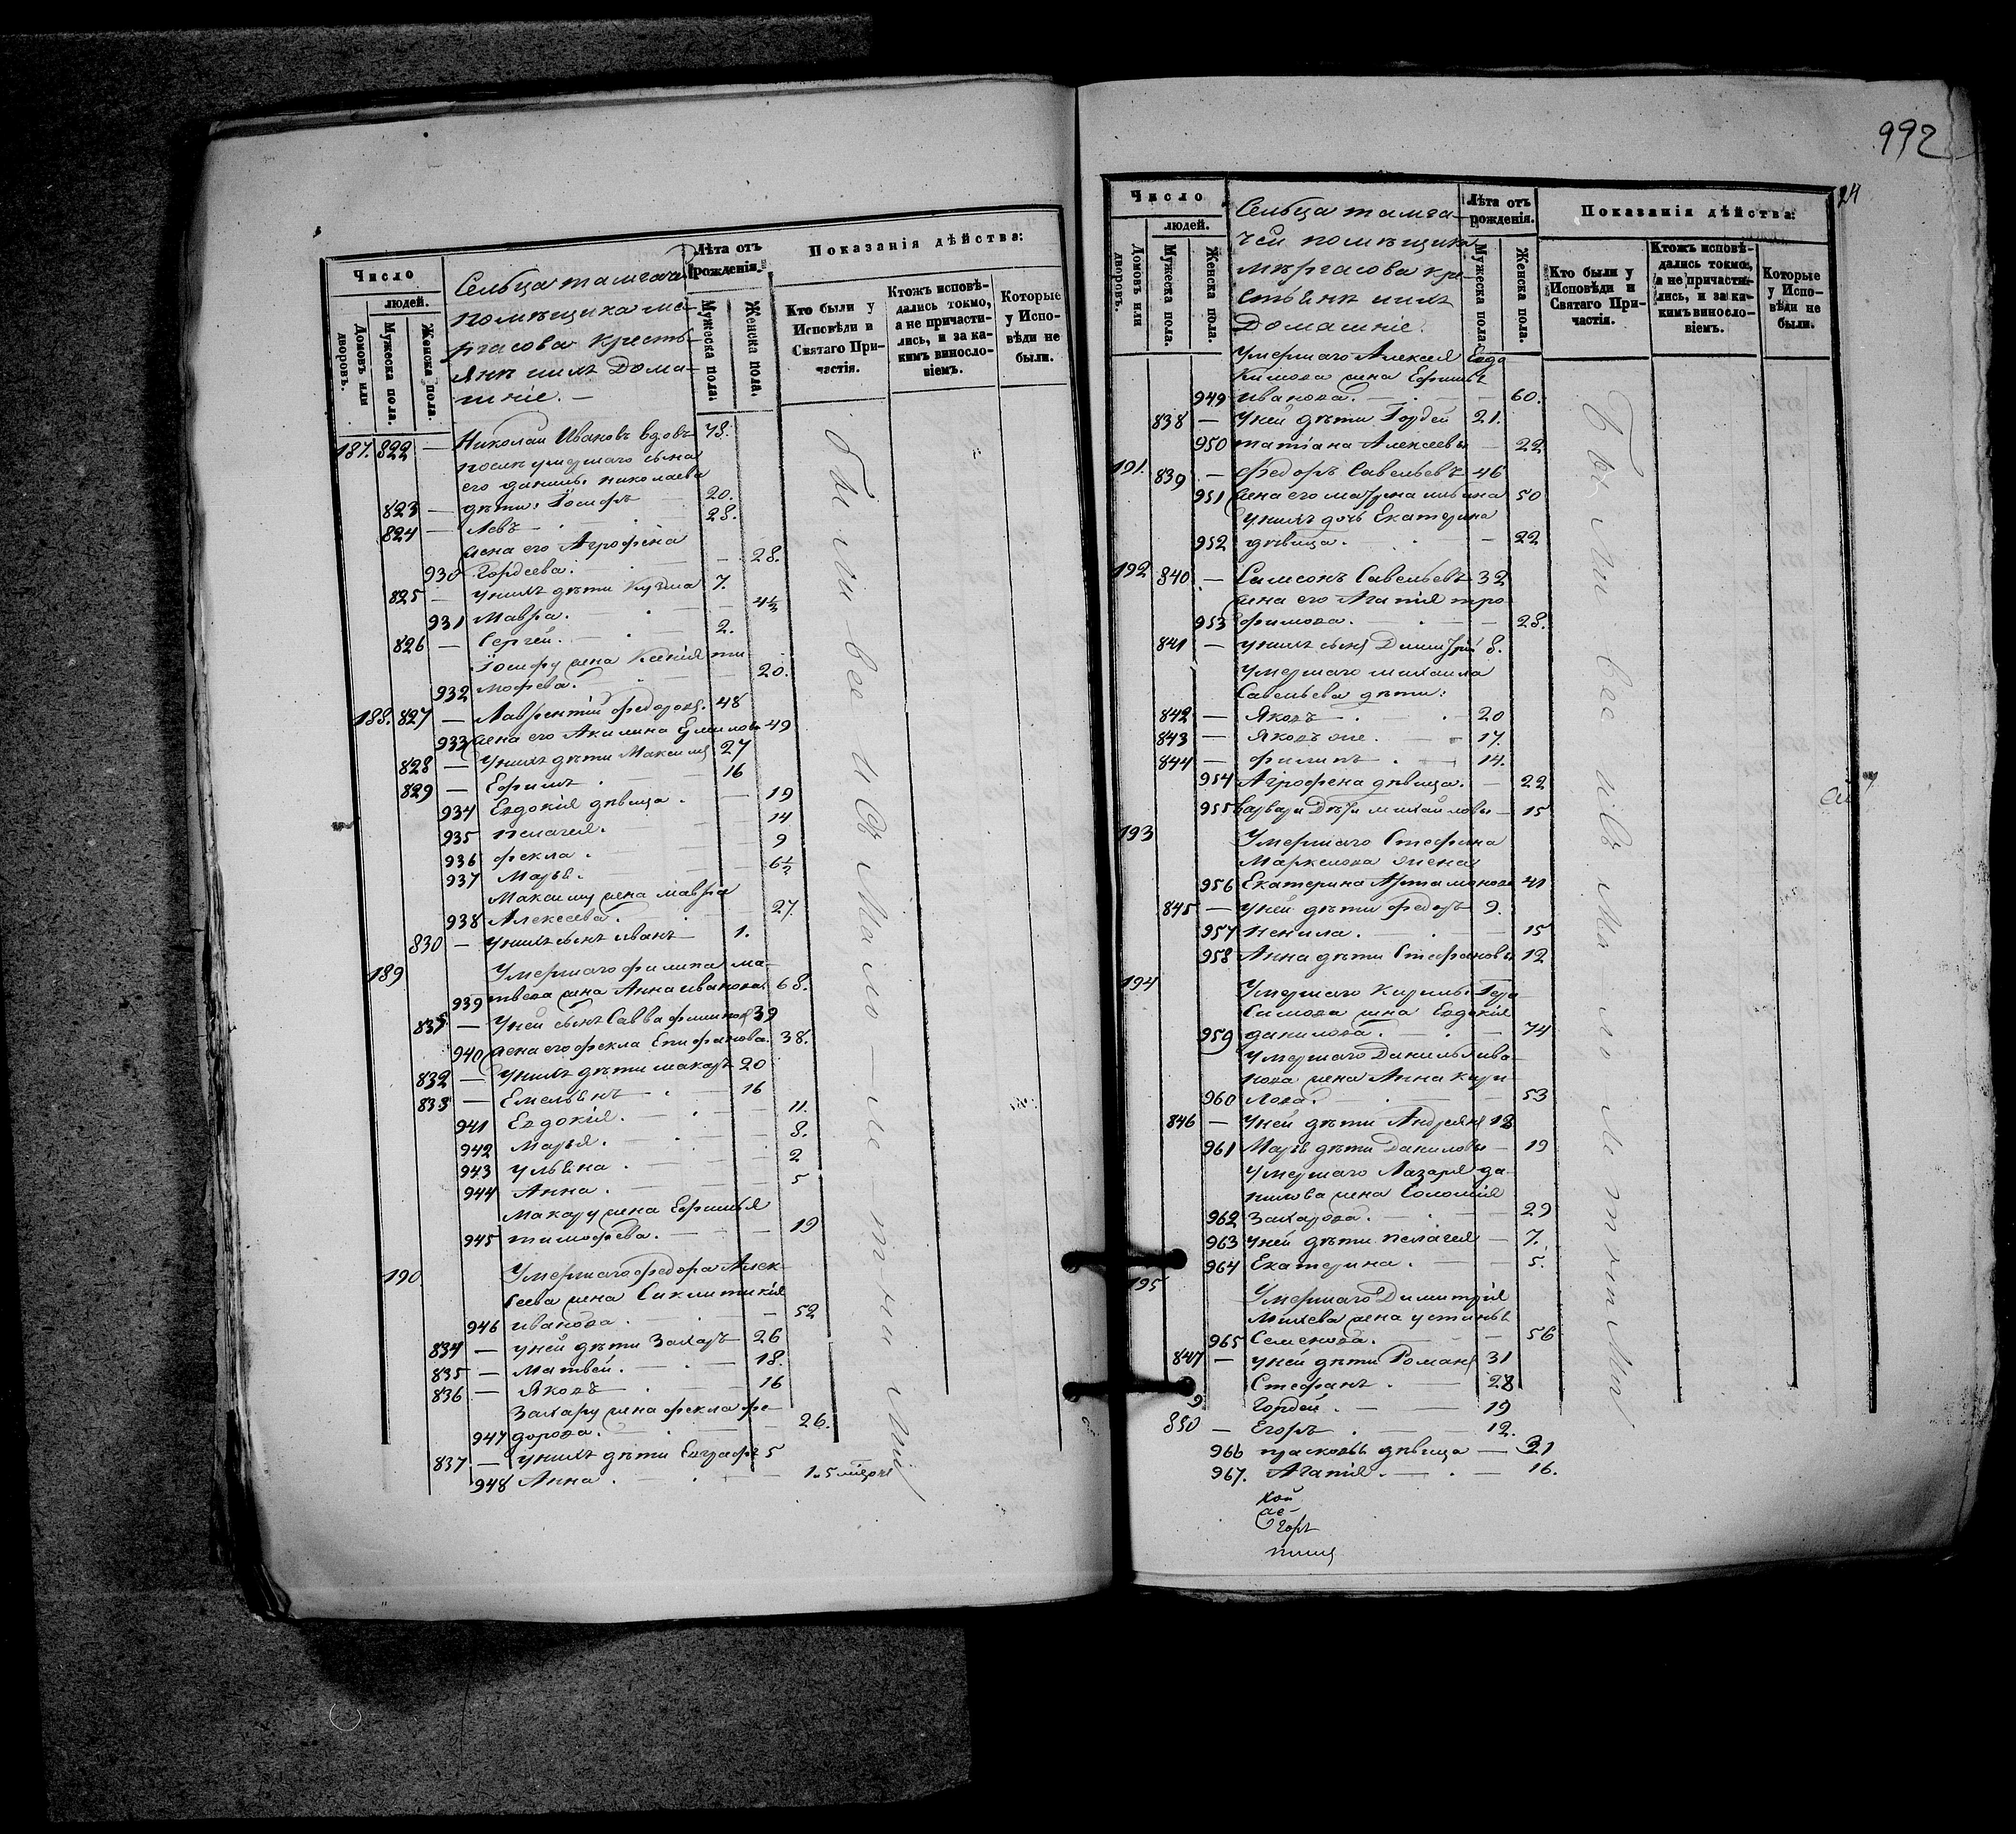 992
24
Число
людей.
Домовъ или дворовъ.
Мужеска пола.
Женска пола.
Сельца тамгачи
помѣщика ме-
ргасова кресть-
янѣ ихъ Дома-
шніе. —
Лѣта отъ рожденія.
Мужеска пола.
Женска пола.
Показанія дѣйства:
Кто были у Исповѣди и Святаго При-частія.
Ктожъ исповѣ-дались токмо, а не причасти-лись, и за ка-кимъ винносло-віемъ.
Которые у Испо-вѣди не были.
187. 822 — Николай Ивановъ вдовъ 78.
послѣ умершаго сына
его данилы николаева
823 — дѣти: Іосифъ 20.
824 — Левъ — 28.
жена его Агрофена
930 Гордеева. — 28.
825 — у нихъ дѣти Кузма 7.
931 Мавра. — 4½
826 — Сергей. — 2.
Іосифу жена Ксенія ти-
932 мофеева. — 20.
188. 827 — Лаврентій федоровъ. 48
933 жена его Акилина Ермилова 49
828 — У нихъ дѣти Максимъ 27
829 — Ефимъ 16
934 Евдокія дѣвица. — 19
935 пелагея. — 14
936 фекла. — 9
937 Марья. — 6½
Максиму жена мавра
938 Алексеева. — 27.
830 — у нихъ сынъ иванъ — 1.
189 Умершаго филипа ма-
939 твеева жена Анна иванова. 68.
831 — У ней сынъ Савва филиповъ 39
940 жена его фекла Епифанова. 38.
832 — У нихъ дѣти макаръ 20
833 — Емельянъ — 16
941 Евдокія. — 11.
942 Марья. — 8.
943 ульяна. — 2
944 Анна. — 5
Макару жена Ефимья
945 тимофеева. — 19
190. Умершаго федора Алек-
сеева жена Сиклитикія
946 иванова. — 52
834 — у ней дѣти Захаръ 26
835 — Матвей. — 18.
836 — Яковъ — 16
Захару жена фекла фе-
947 дорова. — 26.
837 — у нихъ дѣти Евграфъ 5
948 Анна. — 1.5 мѣсяч
были все и св. Мало-ле-тніи Мій
Число
людей.
Домовъ или дворовъ.
Мужеска пола.
Женска пола.
Сельца тамга-
чей помѣщика
мергасова кре-
стьянѣ ихъ
Домашніе.
Лѣта отъ рожденія.
Мужеска пола.
Женска пола.
Показанія дѣйства:
Кто были у Исповѣди и Святаго При-частія.
Ктожъ исповѣ-дались токмо, а не причасти-лись, и за ка-кимъ виносло-віемъ.
Которые у Испо-вѣди не были.
Умершаго Алексея Евдо
кимова жена Ефимья
949 иванова. — 60.
838 — У ней дѣти Гордей 21.
950 татіана Алексеевы — 22
191. 839 — федоръ Савельевъ 46
951 жена его матрена ильина 50
У нихъ дочь Екатерина
952 дѣвица. — 22
192 840 — Самсонъ Савельевъ 32
жена его Агапія тро
953 фимова. — 28.
841 — у нихъ сынъ Димитрій 8.
Умершаго михаила
Савельева дѣти:
842 — Яковъ — 20
843 — Яковъ же. — 17.
844 — филипъ — 14.
954 Агрофена дѣвица. — 22
955 варвара Дѣти михайловы — 15
193 Умершаго Стефана
Маркелова жена
956 Екатерина Артамонова 41
845 — У ней дѣти федоръ 9.
957 ненила. — 15
958 Анна дѣти Стефановы 12
194 Умершаго Кирилы Гера
симова жена Евдокія
959 данилова. — 74
Умершаго Данилы ива-
нова жена Анна кири-
960 лова. — 53
846 — У ней дѣти Андреянъ 13
961 Марья дѣти Даниловы — 19
Умершаго Лазаря да-
нилова жена Соломія
962 Захарова. — 29
963 У ней дѣти пелагея — 7.
964 Екатерина. — 5.
195 Умершаго Димитрія
Михеева жена устинья
965 Семенова. — 56
847 — у ней дѣти Романъ 31
Стефанъ. — 28
9 Гордей. — 19
850 — Егоръ — 12.
966 прасковья дѣвица — 21
967. Агапія. — 16.
Были все и св. Мало ле тніи Мій